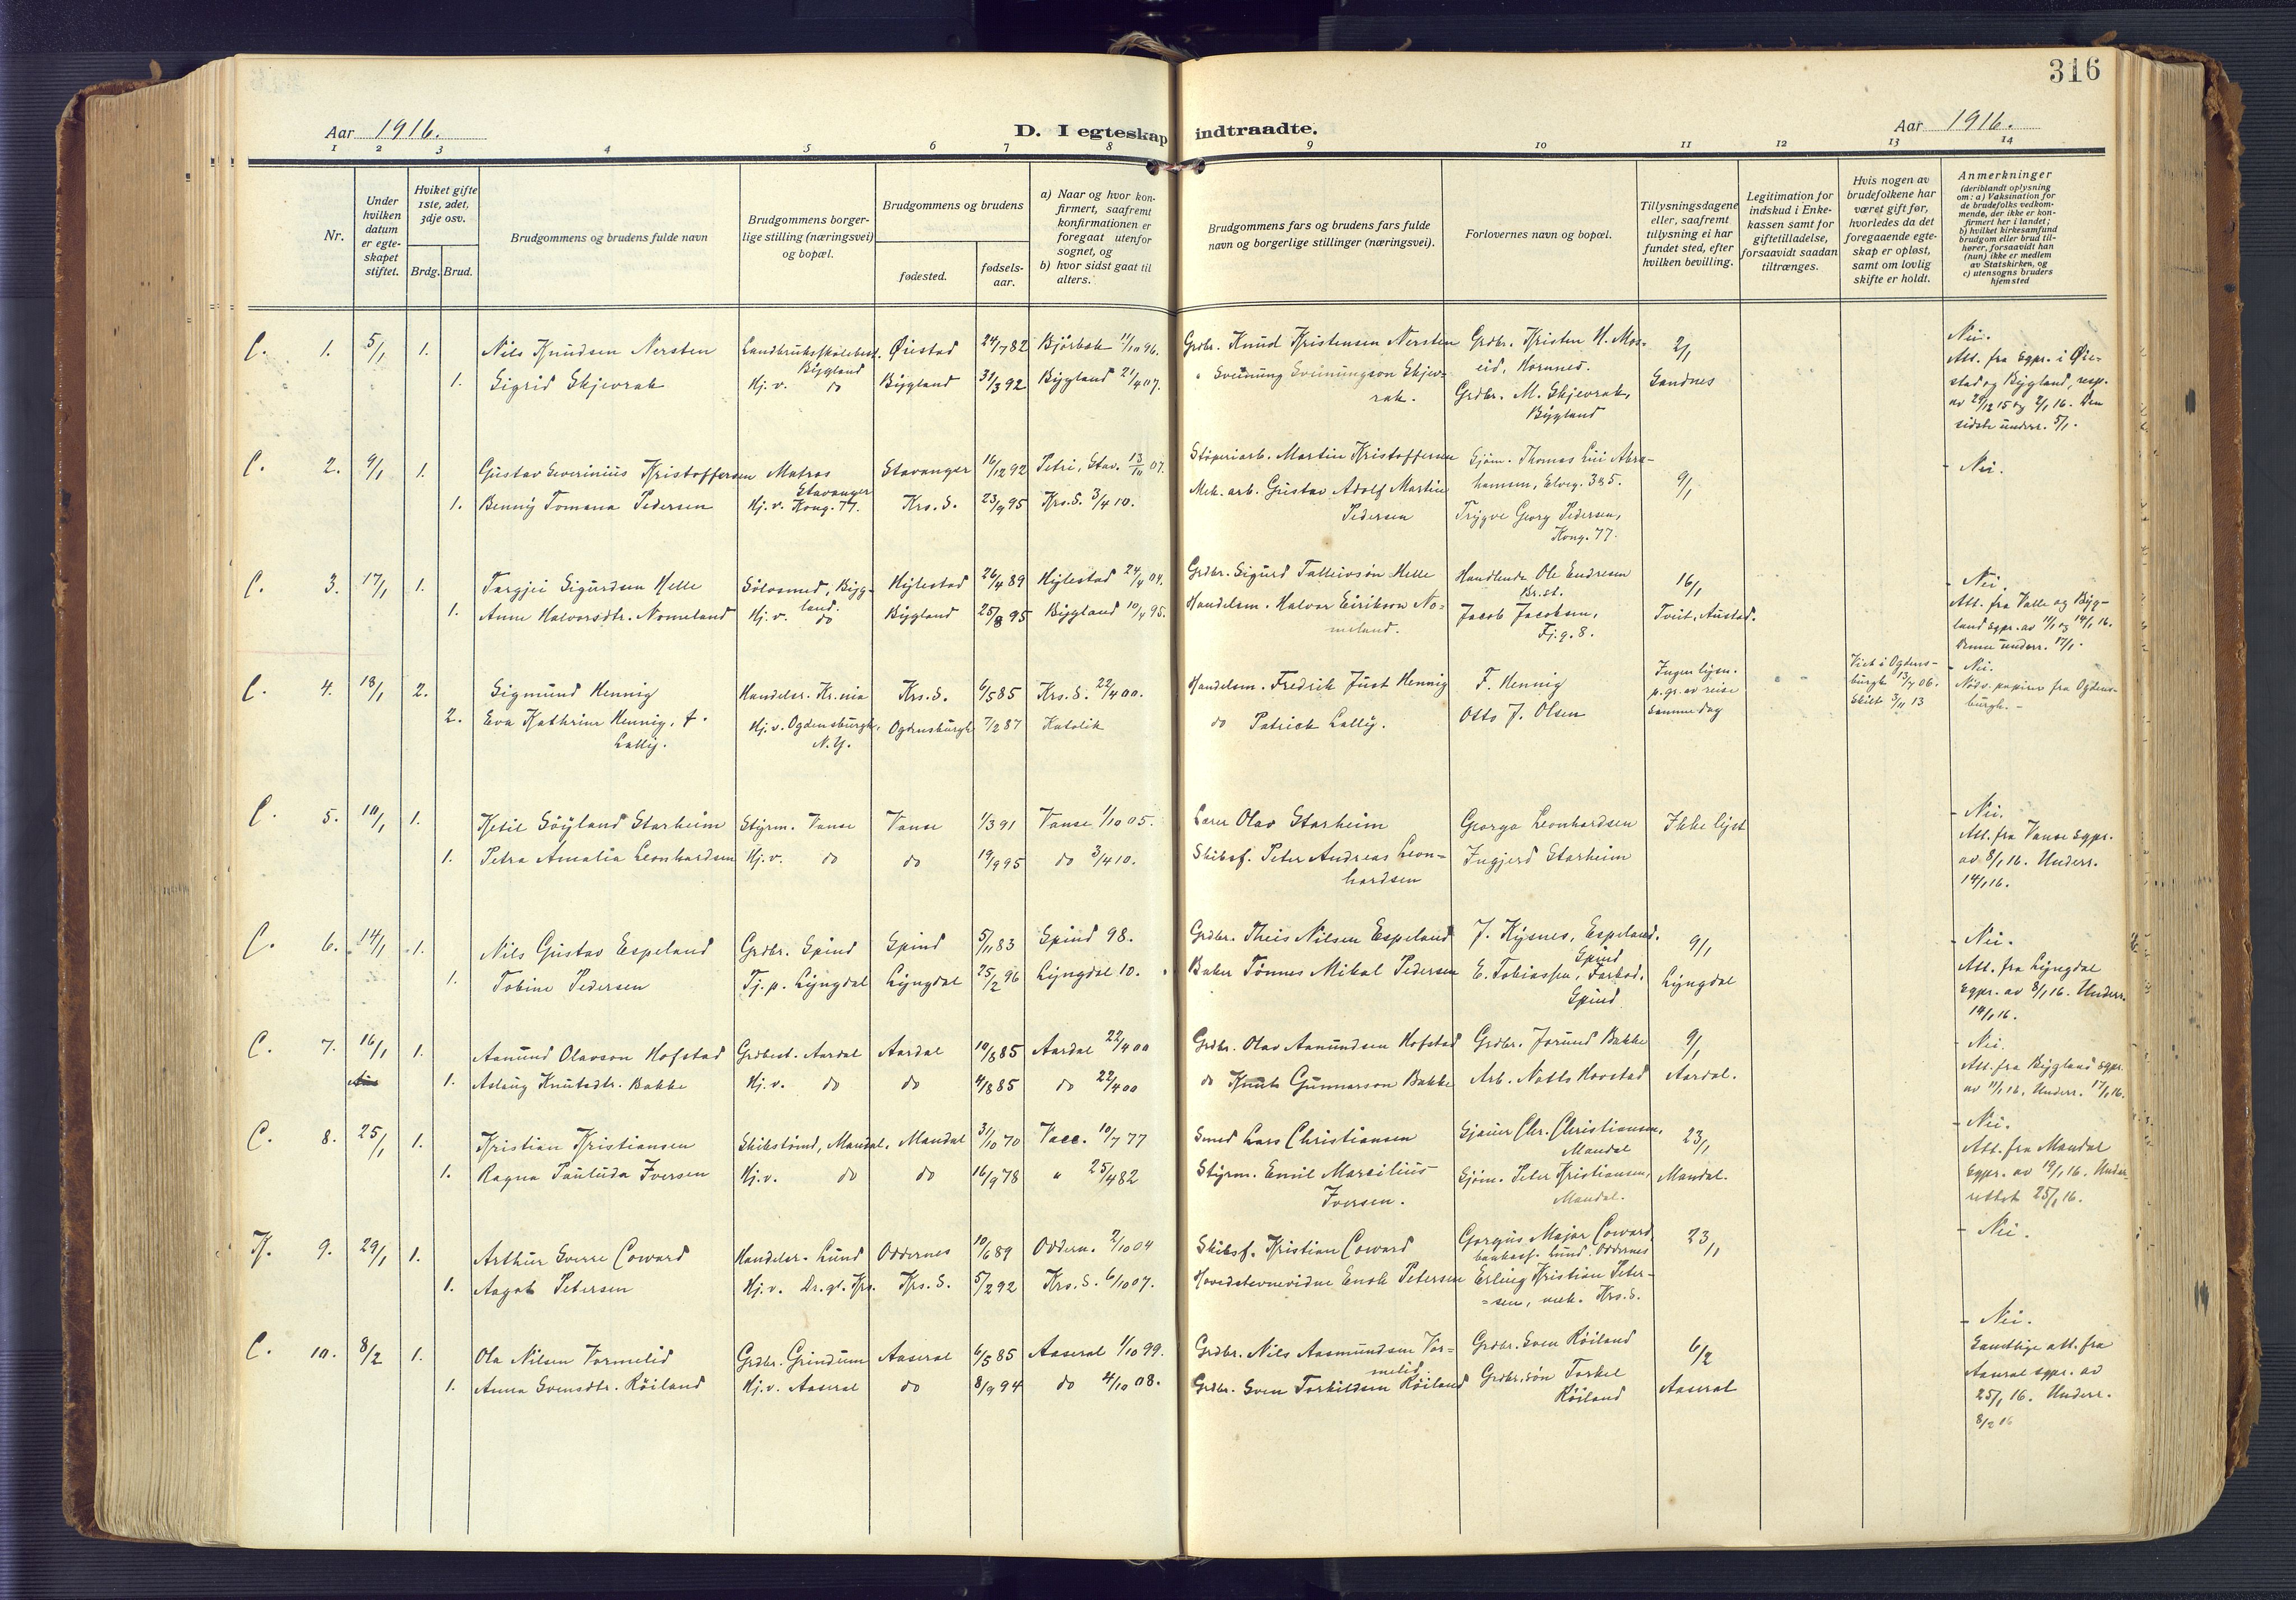 316
Aar 1916.
D. I egteskap indtraadte.
Aar 1916.
1 2 3 4 5 6 7 8 9 10 11 12 13 14
Nr.
Under hvilken datum er egteskapet stiftet.
Hviket gifte 1ste, 2det, 3dje osv.
Brdg. Brud.
Brudgommens og brudens fulde navn
Brudgommens borgerlige stilling (næringsvei) og bopæl.
Brudgommens og brudens
fødested.
fødselsaar.
a) Naar og hvor konfirmert, saafremt konfirmationen er foregaat utenfor sognet, og
b) hvor sidst gaat til alters.
Brudgommens fars og brudens fars fulde navn og borgerlige stillinger (næringsvei).
Forlovernes navn og bopæl.
Tillysningsdagene eller, saafremt tillysning ei har fundet sted, efter hvilken bevilling.
Legitimation for indskud i Enkekassen samt for giftetilladelse, forsaavidt saadan tiltrænges.
Hvis nogen av brudefolkene har været gift før, hvorledes da det foregaaende egteskap er opløst, samt om lovlig skifte er holdt.
Anmerkninger
(deriblandt oplysning om: a) Vaksination for de brudefolks vedkommende, der ikke er konfirmert her i landet; b) hvilket kirkesamfund brudgom eller brud tilhører, forsaavidt han (hun) ikke er medlem av Statskirken, og c) utensogns bruders hjemsted
C. 1. 5/1 1. Nils Knudsen Nersten Landbruksskolebest. Bygland Øiestad 24/7 82 Bjorbek 11/10 96. Grdbr. Knud Kristensen Nersten Grdbr. Kristen H. Moseid, Hornnes. 2/1 Nei.
1. Sigrid Skjevrak Hj. v. do Bygland 31/3 92 Bygland 21/4 07. " Sveinung Sveinungson Skjevrak. Grdbr. M. Skjevrak, Bygland Sandnes Att. fra sgpr. i Øiestad og Bygland, resp. av 29/12 15 og 2/1 16. Den sidste underr. 5/1.
C. 2. 9/1 1. Gustav Severinius Kristoffersen Matros Stavanger Stavanger 16/12 92 Petri, Stav. 13/10 07. Støperiarb. Martin Kristoffersen Sjøm. Thomas Abrahamsen, Elveg. 9/1 Nei.
1. Benny Tomana Pedersen Hj. v. Kong. 77. Krs. S. 23/9 95 Krs. S. 3/4 10. Mek. arb. Gustav Adolf Martin Pedersen Trygve Georg Pedersen, Kong. 77.
C. 3. 17/1 1. Targjei Sigurdsen Helle Sølvsmed, Bygland. Hylestad 26/4 89 Hylestad 24/4 04. Grdbr. Sigurd Talleivsøn Helle Handlende Ole Endresen Br. st. 16/1 Nei.
1. Anne Halvorsdtr. Nomeland Hj. v. do Bygland 25/8 95 Bygland 10/4 95. Handelsm. Halvor Eirikson Nomeland. Jacob Jacobsen, Fj. g. 8. Tveit, Austad. Att. fra Valle og Bygland sgpr. av 11/1 og 14/1 16. Denne underr. 17/1.
C. 4. 18/1 2. Sigmund Hennig Handelsr. Kr.nia Krs. S. 6/5 85 Krs. S. 22/4 00. Handelsm. Fredrik Just Hennig F. Hennig Ingen lysn. p. gr. av reise samme dag Viet i Ogdensburgh 13/7 06. Skilt 3/11 13 Nei.
2. Eva Kathrine Hennig, f. Lally. Hj. v. Ogdensburgh, N. Y. Ogdensburgh 7/2 87 Katolik do Patrick Lally. Otto J. Olsen Nødv. papirer fra Ogdensburgh.
C. 5. 10/1 1. Ketil Søyland Starheim Styrm. Vanse Vanse 1/3 91 Vanse 1/10 05. Lærer Olav Starheim Georga Leonhardsen Ikke lyst Nei.
1. Petra Amalia Leonhardsen Hj. v. do do 19/9 95 do 3/4 10. Skibsf. Peter Andreas Leonhardsen Ingjerd Starheim Att. fra Vanse sgpr. av 8/1 16. Underr. 14/1 16.
C. 6. 14/1 1. Nils Gustav Espeland Grdbr. Spind Spind 5/11 83 Spind 98. Grdbr. Theis Nilsen Espeland J. Kysnes, Espeland, Spind 9/1 Nei.
1. Tobine Pedersen Tj. p. Lyngdal Lyngdal 25/2 96 Lyngdal 10. Baker Tønnes Mikal Pedersen E. Tobiassen, Farkod, Spind. Lyngdal Att. fra Lyngdal sgpr. av 8/1 16. Underr. 14/1 16.
C. 7. 16/1 1. Aanund Olavson Hofstad Grdbest. Aardal Aardal 10/8 85 Aardal 22/4 00 Grdbr. Olav Aanundsen Hofstad Grdbr. Jørund Bakke 9/1 Nei.
1. Aslaug Knutsdtr. Bakke Hj. v. do do 4/8 85 do 22/4 00 do Knut Gunnarson Bakke Arb. Notto Hovstad Aardal. Att. fra Bygland sgpr. av 11/1 16. Underr. 17/1 16.
C. 8. 25/1 1. Kristian Kristiansen Skibstømd, Mandal. Mandal 31/10 70 Vacc. 10/7 77 Smed Lars Christiansen Chr. Christiansen, Mandal 23/1 Nei.
1. Ragna Pauluda Iversen Hj. v. do do 16/9 78 " 25/4 82 Styrm. Emil Marsilius Iversen. Sjøm. Peter Kristiansen, Mandal. Mandal. Att. fra Mandal sgpr. av 19/1 16. Underrettet 25/1 16.
K. 9. 29/1 1. Arthur Sverre Coward Handelsr. Lund Oddernes 10/6 89 Oddern. 2/10 04 Skibsf. Kristian Coward Gorgus Major Coward, bankass. Lund. Oddernes 23/1 Nei.
1. Aagot Petersen Hj. v. Dr. gt. Krs. Krs. S. 5/2 92 Krs. S. 6/10 07. Hovedstevnevidne Enok Petersen Erling Kristian Petersen, mek. Krs. S.
C. 10. 8/2 1. Ola Nilsen Vormelid Grdbr. Grindum Aaseral 6/5 85 Aaseral 1/10 99. Grdbr. Nils Aasmundsen Vormelid. Grdbr. Sven Røiland 6/2 Nei.
1. Anna Svensdtr. Røiland Hj. v. Aaseral do 8/9 94 do 4/10 08. Grdbr. Sven Torkildsen Røiland Grdbr.søn Torkel Røiland Aaseral Samtlige att. fra Aaseral sgpr. av 25/1 16. Underr. 8/2 16